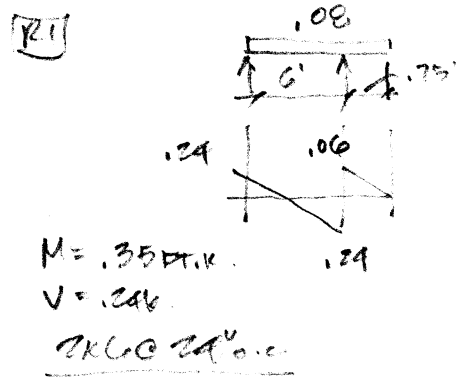 R1
.08
6'
.75'
.24
.06
.24
M= .35 FT.K.
V= .24k
2x6@ 24" o.c.